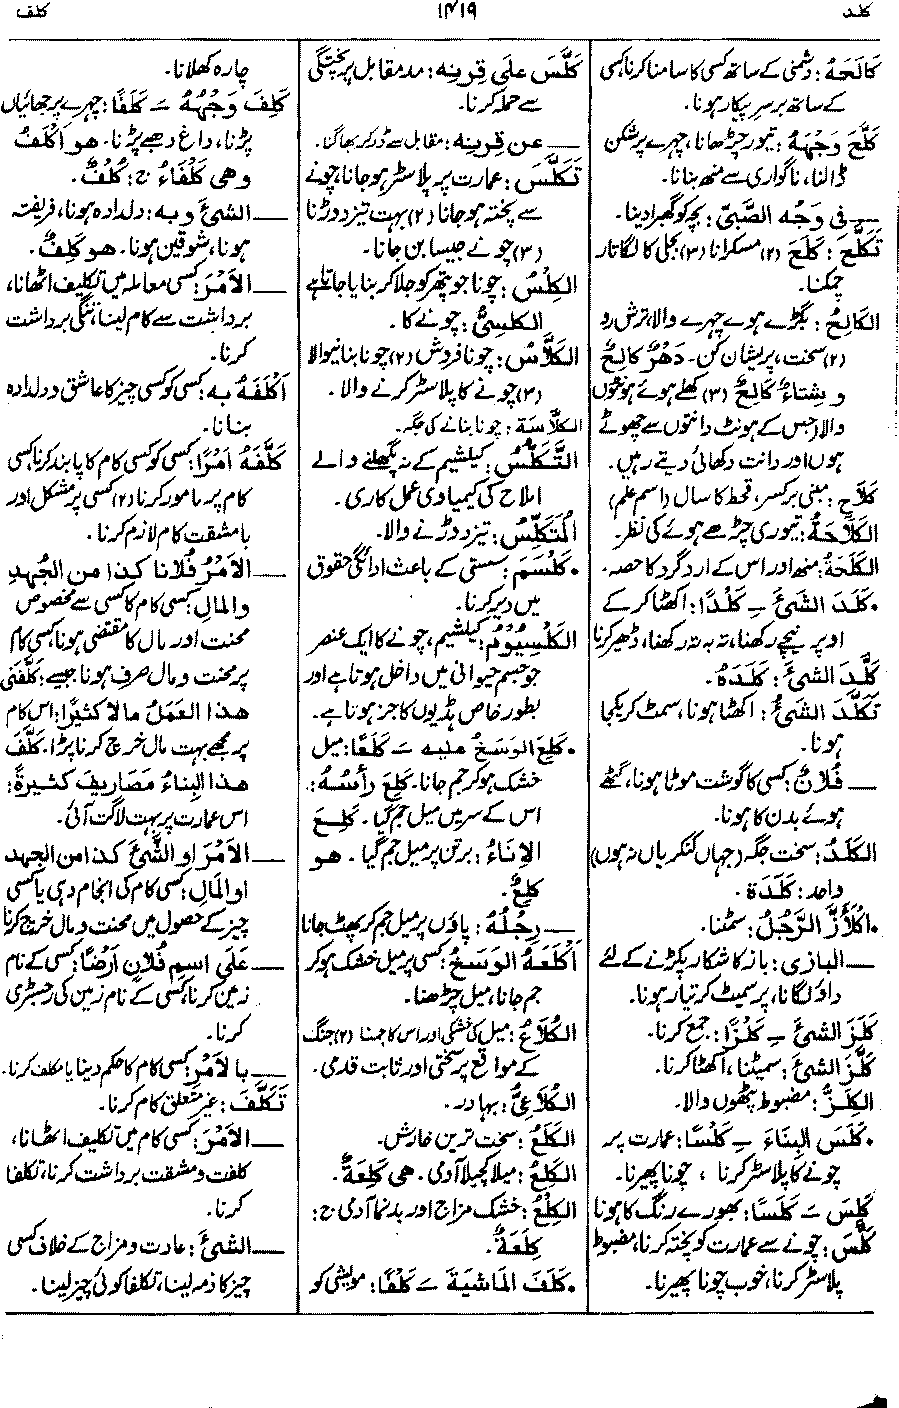 کلد
۱۴۱۹
کلف
کَالَحَهُ: دشمنی کے ساتھ کسی کا سامنا کرنا، کسی
کے ساتھ برسرِ پیکار ہونا۔
کَلَّحَ وَجْهَهُ: تیور چڑھانا، چہرے پر شکن
ڈالنا، ناگواری سے منھ بنانا۔
ــــ فی وَجْهِ الصَّبِیِّ: بچہ کو گھبرا دینا۔
تَکَلَّحَ: کَلَحَ (۲) مسکرانا (۳) بجلی کا لگاتار
چمکنا۔
الکَالِحُ: بگڑے ہوے چہرے والا، ترش رو
(۲) سخت، پریشان کن۔ دَهْرٌ کَالِحٌ
و شِتَاءٌ کَالِحٌ (۳) کھلے ہوئے ہونٹوں
والا (جس کے ہونٹ دانتوں سے چھوٹے
ہوں اور دانت دکھائی دیتے رہیں۔
کَلَاحِ: مبنی بر کسر، قحط کا سال (اسم علم)
الکَلَّاحَةُ: تیوری چڑھے ہوئے کی نظر۔
الکَلَحَةُ: منھ اور اس کے ارد گرد کا حصہ۔
•کَلَدَ الشَّیْءَ ــِـ کَلْدًا: اکٹھا کرکے
اوپر نیچے رکھنا، تہ بہ تہ رکھنا، ڈھیر کرنا
کَلَّدَ الشَّیْءَ: کَلَدَهُ۔
تَکَلَّدَ الشَّیْءُ: اکٹھا ہونا، سمٹ کر یکجا
ہونا۔
ــــ فُلَانٌ: کسی کا گوشت موٹا ہونا، گٹھے
ہوئے بدن کا ہونا۔
الکَلَدُ: سخت جگہ (جہاں کنکریاں نہ ہوں)
واحد: کَلَدَة۔
•اکْلَأَزَّ الرَّجُلُ: سمٹنا۔
ــــ البازی: باز کا شکار پکڑنے کے لئے
داؤ لگانا، پر سمیٹ کر تیار ہونا۔
کَلَزَ الشیءَ ــِـ کَلْزًا: جمع کرنا۔
کَلَّزَ الشیءَ: سمیٹنا، اکٹھا کرنا۔
الکَلِزُّ: مضبوط پٹھوں والا۔
•کَلَسَ البِنَاءَ ــِـ کَلْسًا: عمارت پر
چونے کا پلاسٹر کرنا، چونا پھیرنا۔
کَلِسَ ــَـ کَلَسًا: بھورے رنگ کا ہونا
کَلَّسَ: چونے سے عمارت کو پختہ کرنا، مضبوط
پلاسٹر کرنا، خوب چونا پھیرنا۔
کَلَّسَ عَلَی قِرنِه: مدمقابل پر پختگی
سے حملہ کرنا۔
ــــ عن قِرنِه: مقابل سے ڈر کر بھاگنا۔
تَکَلَّسَ: عمارت پر پلاسٹر ہوجانا، چونے
سے پختہ ہوجانا (۲) بہت تیز دوڑنا
(۳) چونے جیسا بن جانا۔
الکِلْسُ: چونا جو پتھر کو جلا کر بنایا جاتا ہے
الکلسیُّ: چونے کا۔
الکَلَّاسُ: چونا فروش (۲) چونا بنانیوالا
(۳) چونے کا پلاسٹر کرنے والا۔
الکلاّسَة: چونا بنانے کی جگہ۔
التَّکَلُّسُ: کیلشیم کے نہ پگھلنے والے
املاح کی کیمیاوی عمل کاری۔
المُتَکَلِّسُ: تیز دوڑنے والا۔
•کَلْسَمَ: سستی کے باعث ادائگیٔ حقوق
میں دیر کرنا۔
الکَلْسِیُومُ: کیلشیم، چونے کا ایک عنصر
جو جسم حیوانی میں داخل ہوتا ہے اور
بطور خاص ہڈیوں کا جز ہوتا ہے۔
•کَلِعَ الوَسَخُ علیه ــَـ کَلَعًا: میل
خشک ہوکر جم جانا۔ کَلِعَ رَأْسُهُ:
اس کے سر میں میل جم گیا۔ کَلِعَ
الإنَاءُ: برتن پر میل جم گیا۔ هو
کَلِعٌ۔
ــــ رِجْلُهُ: پاؤں پر میل جم کر پھٹ جانا
أکْلَعَهُ الوَسَخُ: کسی پر میل خشک ہوکر
جم جانا، میل چڑھنا۔
الکُلَاعُ: میل کی خشکی اور اس کا جمنا (۲) جنگ
کے مواقع پر سختی اور ثابت قدمی۔
الکُلَاعِیُّ: بہادر۔
الکَلَعُ: سخت ترین خارش۔
الکَلِعُ: میلا کچیلا آدمی۔ هی کَلِعَةٌ۔
الکِلْعُ: خشک مزاج اور بدنما آدمی ج:
کِلَعَةٌ۔
•کَلَفَ المَاشِیَةَ ــِـ کَلْفًا: مویشی کو
چارہ کھلانا۔
کَلِفَ وَجْهُهُ ــَـ کَلَفًا: چہرے پر جھائیاں
پڑنا، داغ دھبے پڑنا۔ هو أکْلَفُ
وهی کَلْفَاءُ ج: کُلْفٌ۔
ــــ الشیءَ و به: دلدادہ ہونا، فریفتہ
ہونا، شوقین ہونا۔ هو کَلِفٌ۔
ــــ الأمْرَ: کسی معاملہ میں تکلیف اٹھانا،
برداشت سے کام لینا، تنگی برداشت
کرنا۔
أکْلَفَهُ به: کسی کو کسی چیز کا عاشق و دلدادہ
بنانا۔
کَلَّفَهُ أمْرًا: کسی کو کسی کام کا پابند کرنا، کسی
کام پر مامور کرنا (۲) کسی پر مشکل اور
بامشقت کام لازم کرنا۔
ــــ الأمْرُ فُلَانًا کَذَا من الجُهدِ
والمالِ: کسی کام کا کسی سے مخصوص
محنت اور مال کا مقتضی ہونا، کسی کام
پر محنت و مال صرف ہونا جیسے: کَلَّفَنِی
هذا العَمَلُ مالاً کثیرًا: اس کام
پر مجھے بہت مال خرچ کرنا پڑا۔ کَلَّفَ
هذا البِنَاءُ مَصَارِیفَ کثِیرَةً:
اس عمارت پر بہت لاگت آئی۔
ــــ الأمْرَ او الشَّیْءَ کذا من الجهد
او المَالِ: کسی کام کی انجام دہی یا کسی
چیز کے حصول میں محنت و مال خرچ کرنا
ــــ عَلَی اسمِ فُلَانٍ أرضًا: کسی کے نام
زمین کرنا، کسی کے نام زمین کی رجسٹری
کرنا۔
ــــ بالأمْرِ: کسی کام کا حکم دینا یا مکلف کرنا۔
تَکَلَّفَ: غیر متعلق کام کرنا۔
ــــ الأمْرَ: کسی کام میں تکلیف اٹھانا،
کلفت و مشقت برداشت کرنا، تکلفا
کرنا۔
ــــ الشَّیْءَ: عادت و مزاج کے خلاف کسی
چیز کا ذمہ لینا، تکلفا کوئی چیز لینا۔